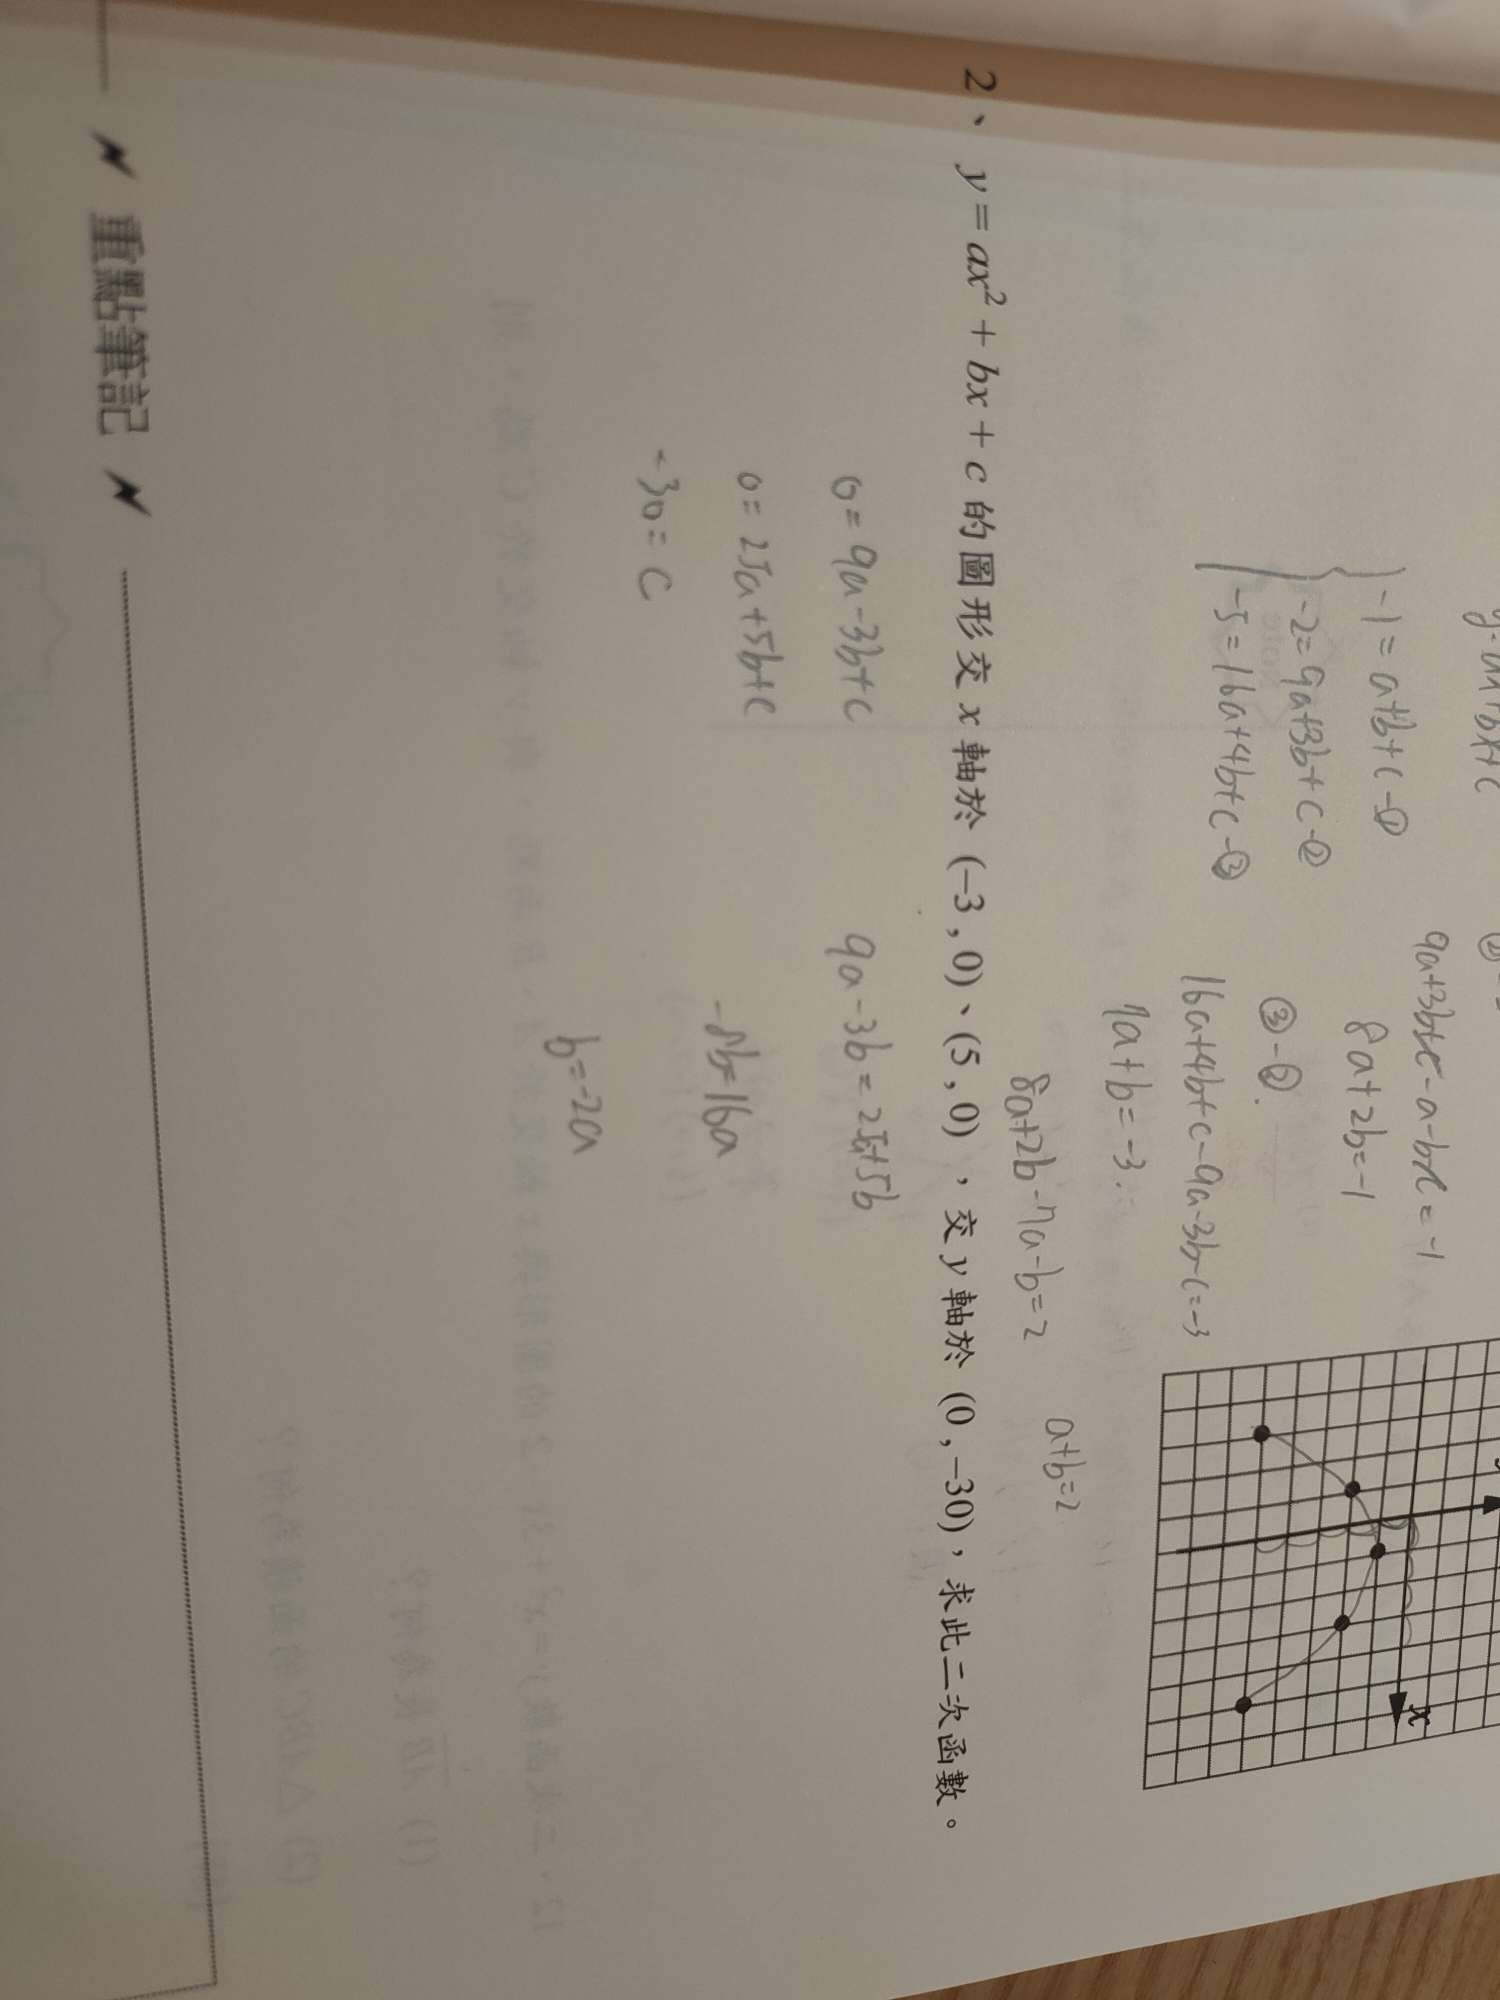 -1=a+b+c-①
-2=9a+3b+c-②
-5=16a+4b+c-③
9a+3b+c-a-b-c=-1
8a+2b=-1
③-②
16a+4b+c-9a-3b-c=-3
7a+b=-3
8a+2b-7a-b=2
a+b=2
x
2、y=ax²+bx+c 的圖形交 x 軸於 (-3,0)、(5,0),交 y 軸於 (0,-30),求此二次函數。
0=9a-3b+c
0=25a+5b+c
-30=c
9a-3b=25a+5b
-8b=16a
b=-2a
重點筆記